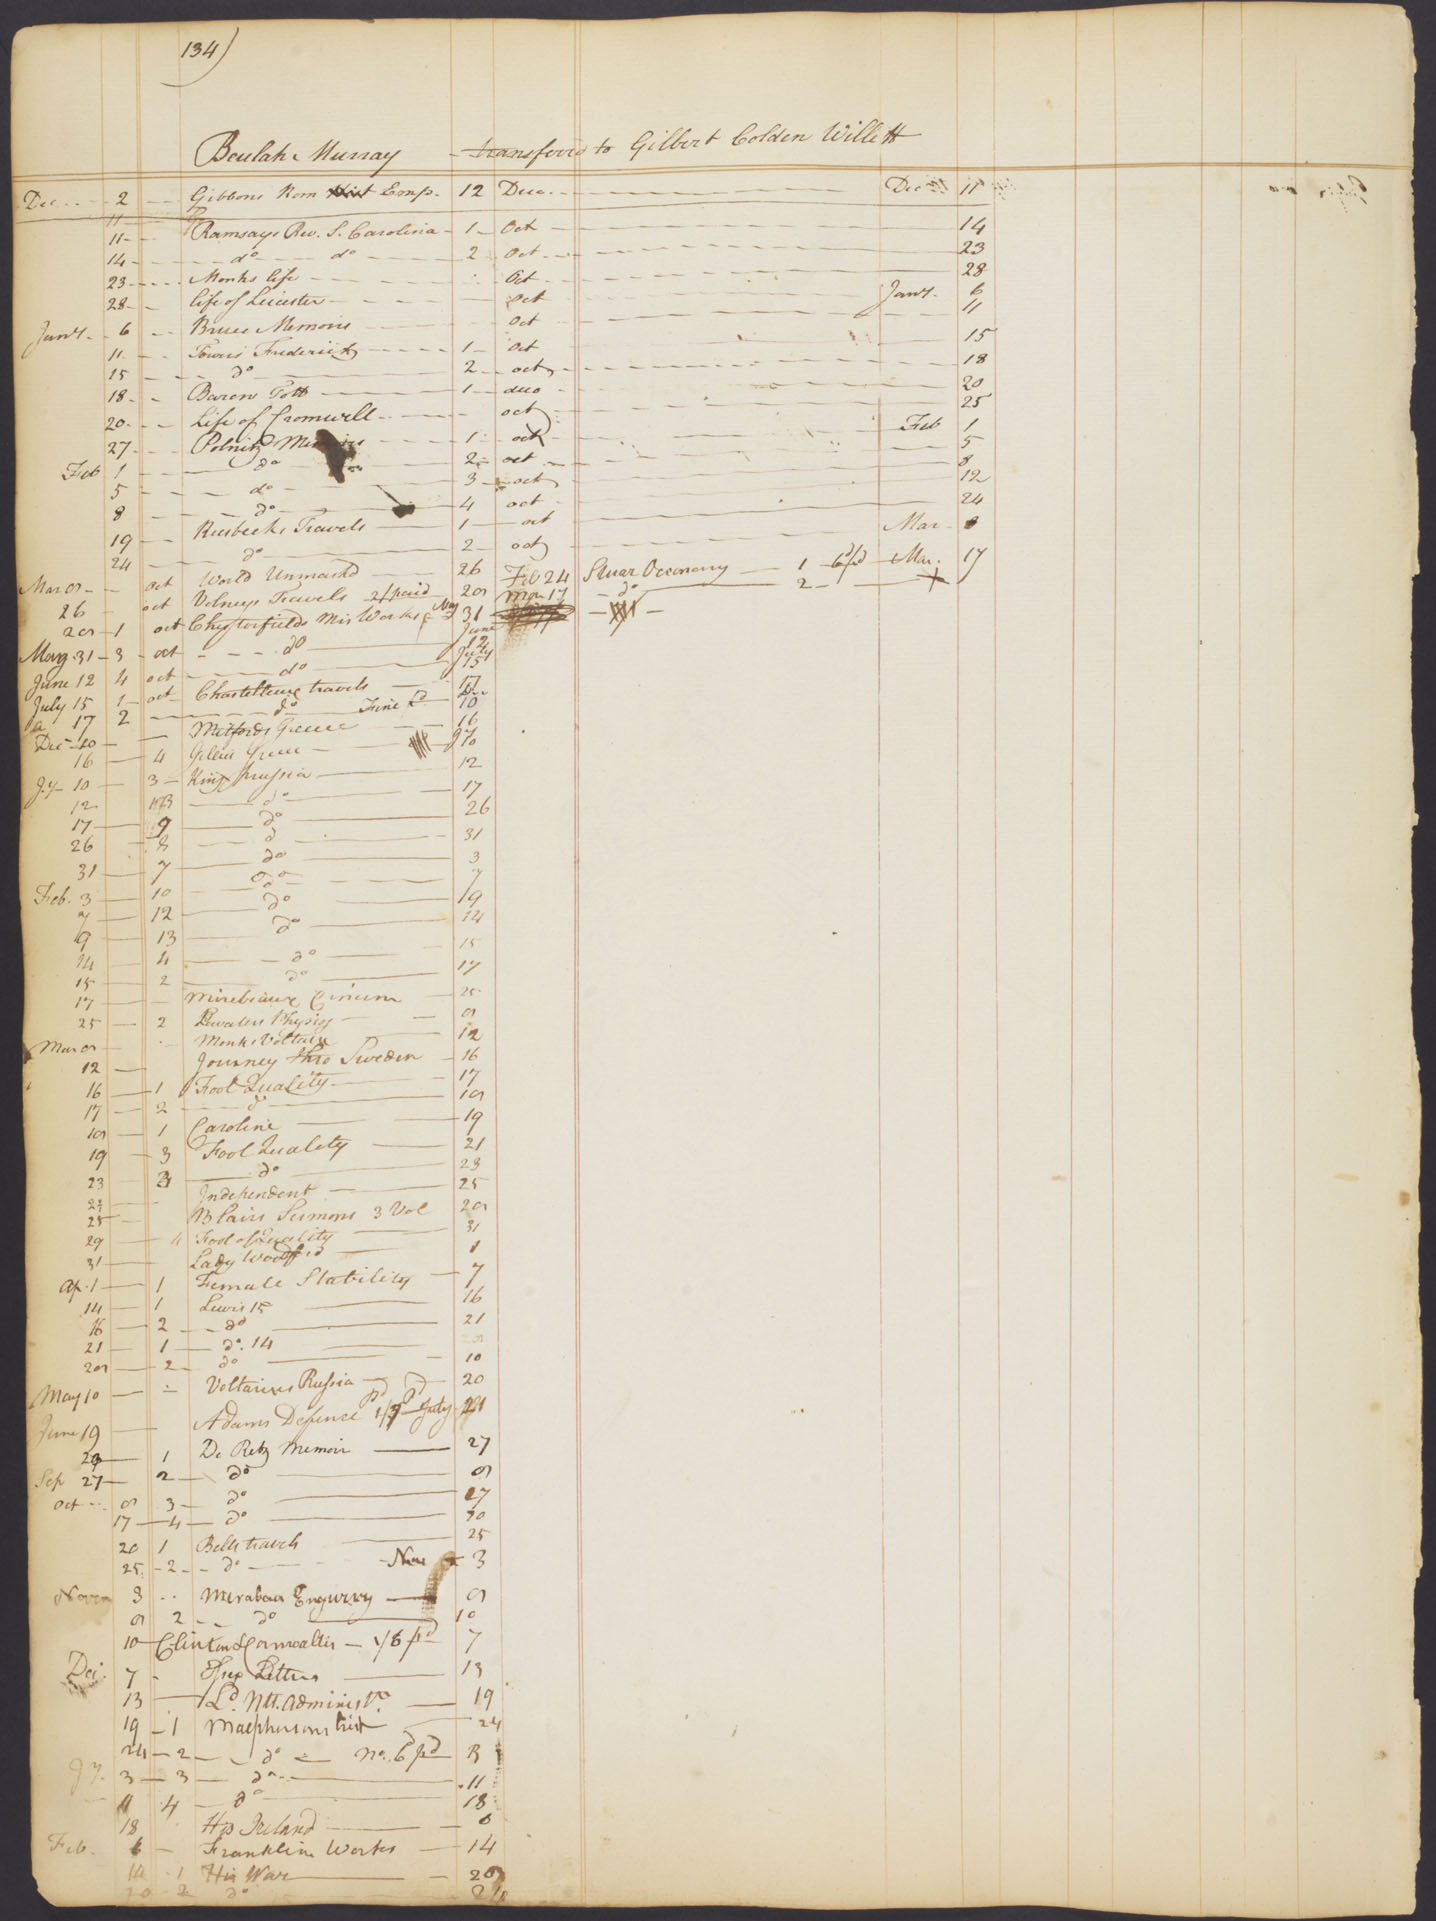 134)
Beulah Murray - transferred to Gilbert Colden Willett
Dec 2 Gibbons Rom Hist Emp. 12 Duo. Dec 11
11 Ramsays Rev. S. Carolina 1 Oct 14
14 do do 2 Oct 23
23 Monks life Oct 28
28 life of Leicester Oct Jany. 6
Jany. 6 Bruces Memoirs Oct 11
11 Towers Frederick 1 Oct 15
15 do 2 oct 18
18 Baron Tott 1 duo 20
20 Life of Cromwell oct 25
27 Polnitz Memoirs 1 oct Feb 1
Feb 1 do 2 oct 5
5 do 3 oct 8
8 do 4 oct 12
19 Risbecks Travels 1 oct 24
24 do 2 oct Mar 8
Mar 8 oct World Unmaskd 26 Feb 24 Stuar Oeconomy 1 6d pd Mar. 17
26 oct Volneys Travels 2/ paid 28 Mar 17 do 2 +
28 1 oct Chesterfields Mis Works May 31
May 31 3 oct do June 12
June 12 4 oct do July 15
July 15 1 oct Chastelleux travels 17
17 2 do Dec 10
Dec 10 Mitfords Greece 16
16 4 Gillies Greece Jy 10
Jy 10 3 King Prussia 12
12 do 17
17 9 do 26
26 8 do 31
31 7 do 3
Feb. 3 10 do 7
7 12 do 9
9 13 do 14
14 4 do 15
15 2 do 17
17 25
25 2 Lavaters Physiog 8
Mar 8 Monks Voltaire 12
12 Journey thro Sweden 16
16 1 Fool Quality 17
17 2 do 18
18 1 Caroline 19
19 3 Fool Quality 21
23 do 23
Independent 25
25 Blairs Sermons 3 Vol 28
29 4 Fool of Quality 31
31 Lady Woodford 1
Ap. 1 1 Female Stability 7
14 1 Lewis 15 16
16 2 do 21
21 1 do. 14 28
28 2 do 10
May 10 Voltaires Russia 20
June 19 Adams Defence 1/3 pd July 21
1 De Retz Memoir 27
Sep 27 2 do 8
Oct 8 3 do 17
17 4 do 20
20 1 Bells travels 25
25 2 do Nov 3
Novem 3 Mirabeau Enquiry 8
8 2 do 10
10 Clinton & Cornwallis 1/6 pd 7
Dec. 7 Essex Letters 13
13 Ld. Nth. Administn. 19
19 1 Macphersons hist 24
24 2 do No. 6 pd 3
Jy. 3 3 do 11
11 4 do 18
18 His Ireland 6
Feb. 6 Franklin Works 14
14 1 His War 20
20 2 do